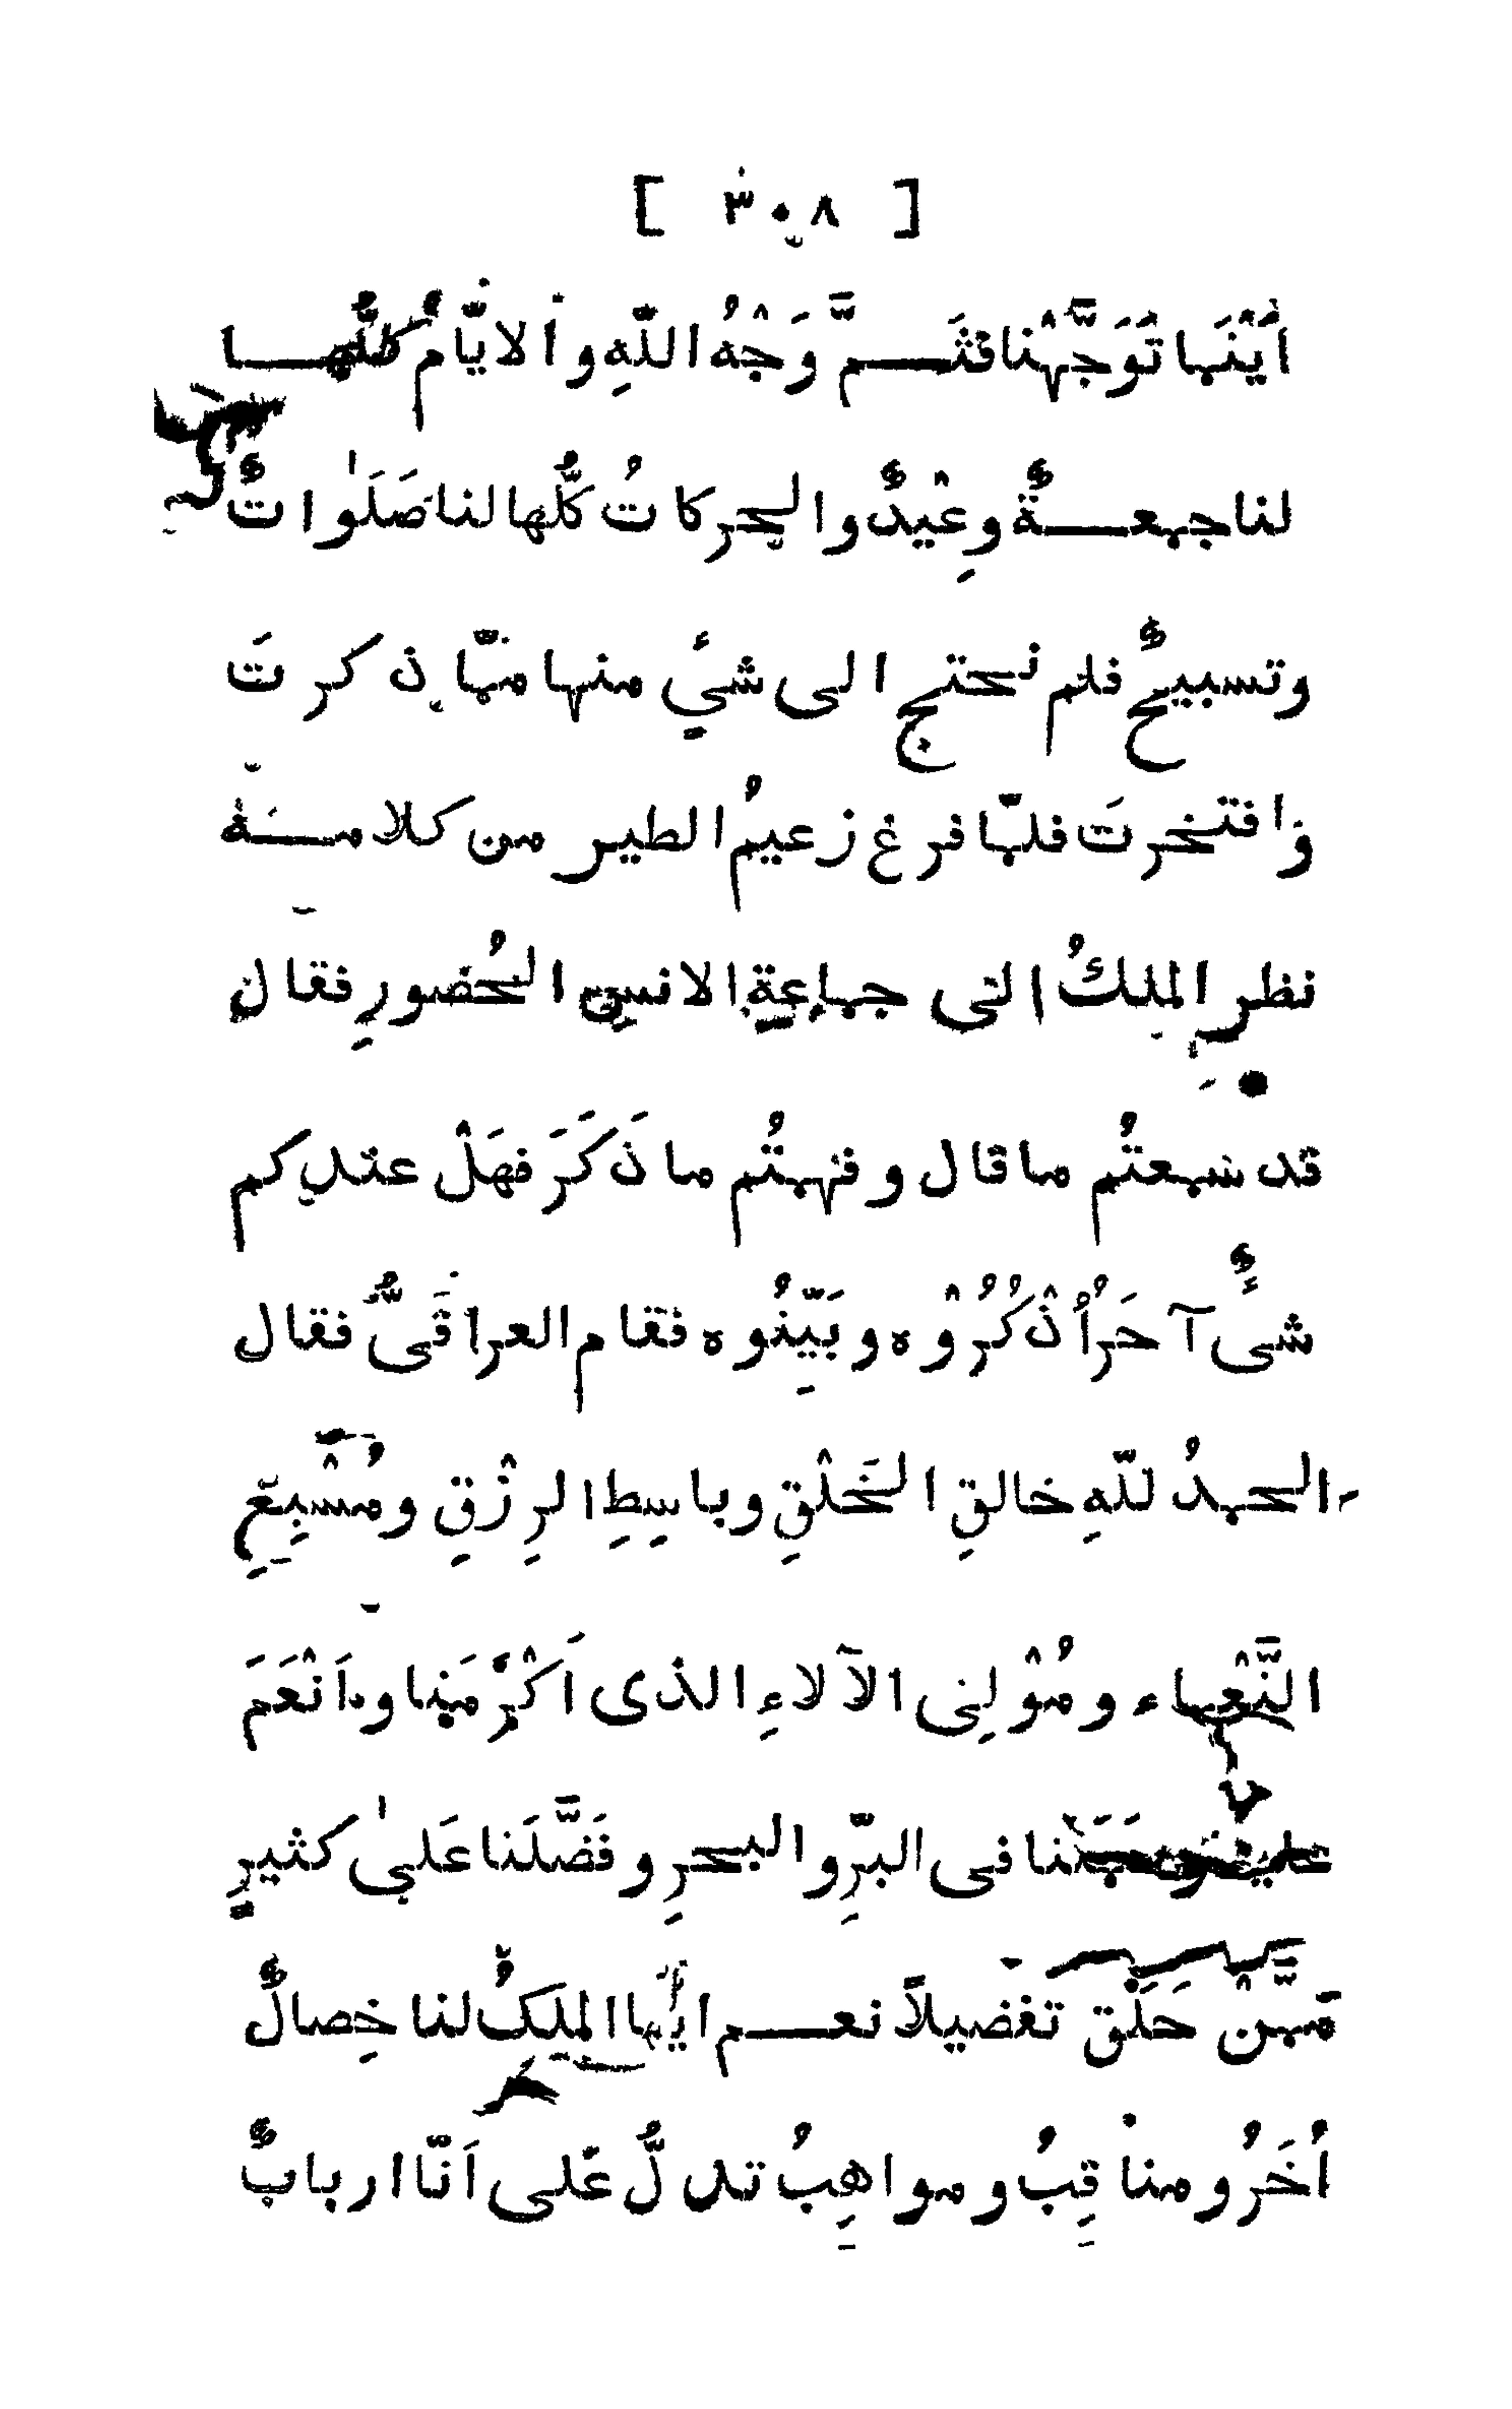 [ ٣٠٨ ]
اَيْنَما تَوَجَّهْنا فثَمَّ وَجْهُ اللّهِ والايّامُ كلُّها
لنا جمعةٌ وعِيْدٌ والحركاتُ كلُّها لنا صَلَواتٌ
وتسبيحٌ فلم نحتج الى شيٍ منها ممّا ذكرتَ
وافتخرتَ فلمّا فرغ زعيمُ الطير من كلامه
نظر الملكُ الى جماعةِ الانسِ الحُضورِ فقال
قد سمعتُم ما قال وفهمتُم ما ذَكَرَ فهَلْ عندكم
شىءٌ آخَرُ اُذْكُرُوْه وبَيِّنُوه فقام العراقىُّ فقال
الحمدُ للّهِ خالقِ الخَلْقِ وباسِطِ الرِزْقِ ومُسْبِغِ
النَّعْماء ومُوْلِى الآلاءِ الذى اَكْرَمَنا واَنْعَمَ
علينا وحَمَلَنا فى البرِّ والبحرِ وفَضَّلَنا عَلىٰ كثيرٍ
مّمَّنْ خَلَق تفضيلاً نعم ايّها الملِكُ لنا خِصالٌ
اُخَرُ ومناقِبُ ومواهِبُ تدلُّ عَلى اَنّا اربابٌ